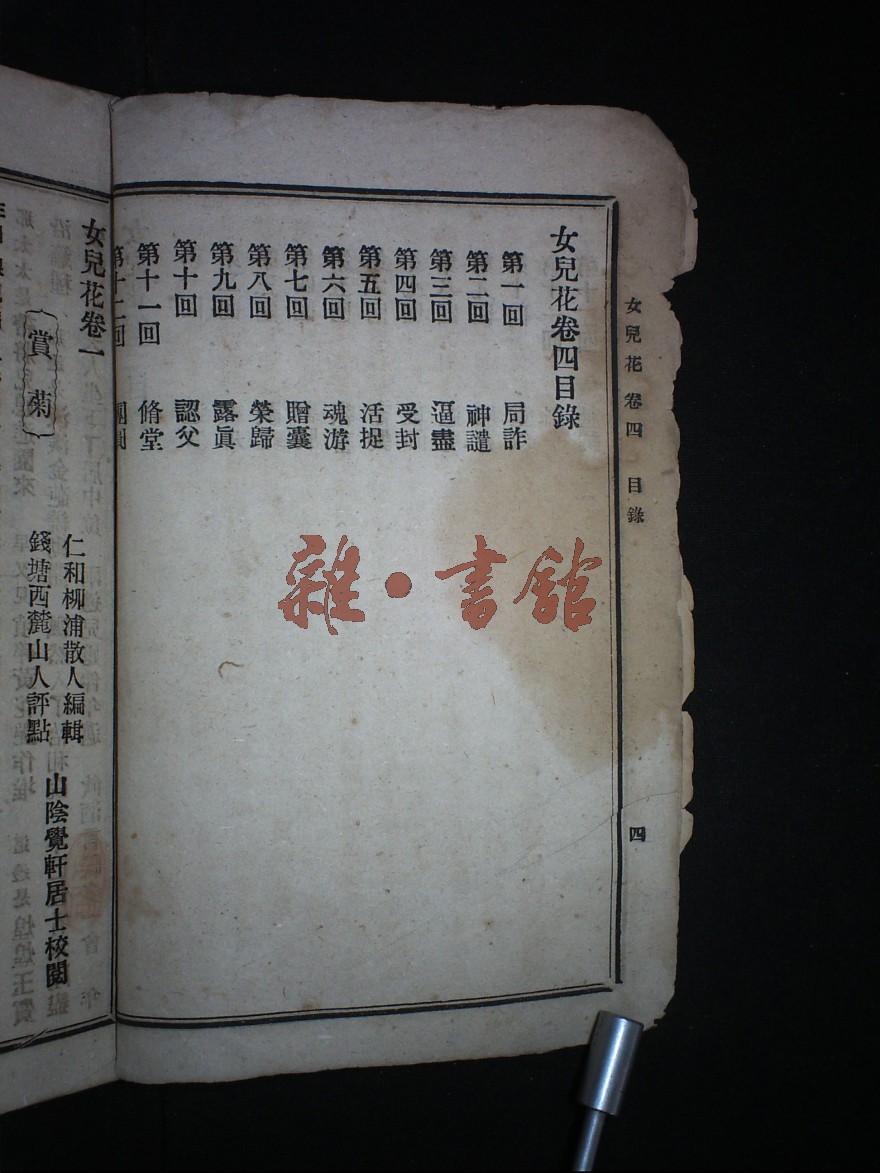 女兒花 卷四 目錄 四
女兒花卷四目錄
第一回 局詐
第二回 神譴
第三回 逼盡
第四回 受封
第五回 活捉
第六回 魂游
第七回 贈囊
第八回 榮歸
第九回 露眞
第十回 認父
第十一回 脩堂
第十二回
女兒花卷一
仁和柳浦散人編輯
錢塘西麓山人評點
山陰覺軒居士校閱
賞菊
雜·書館